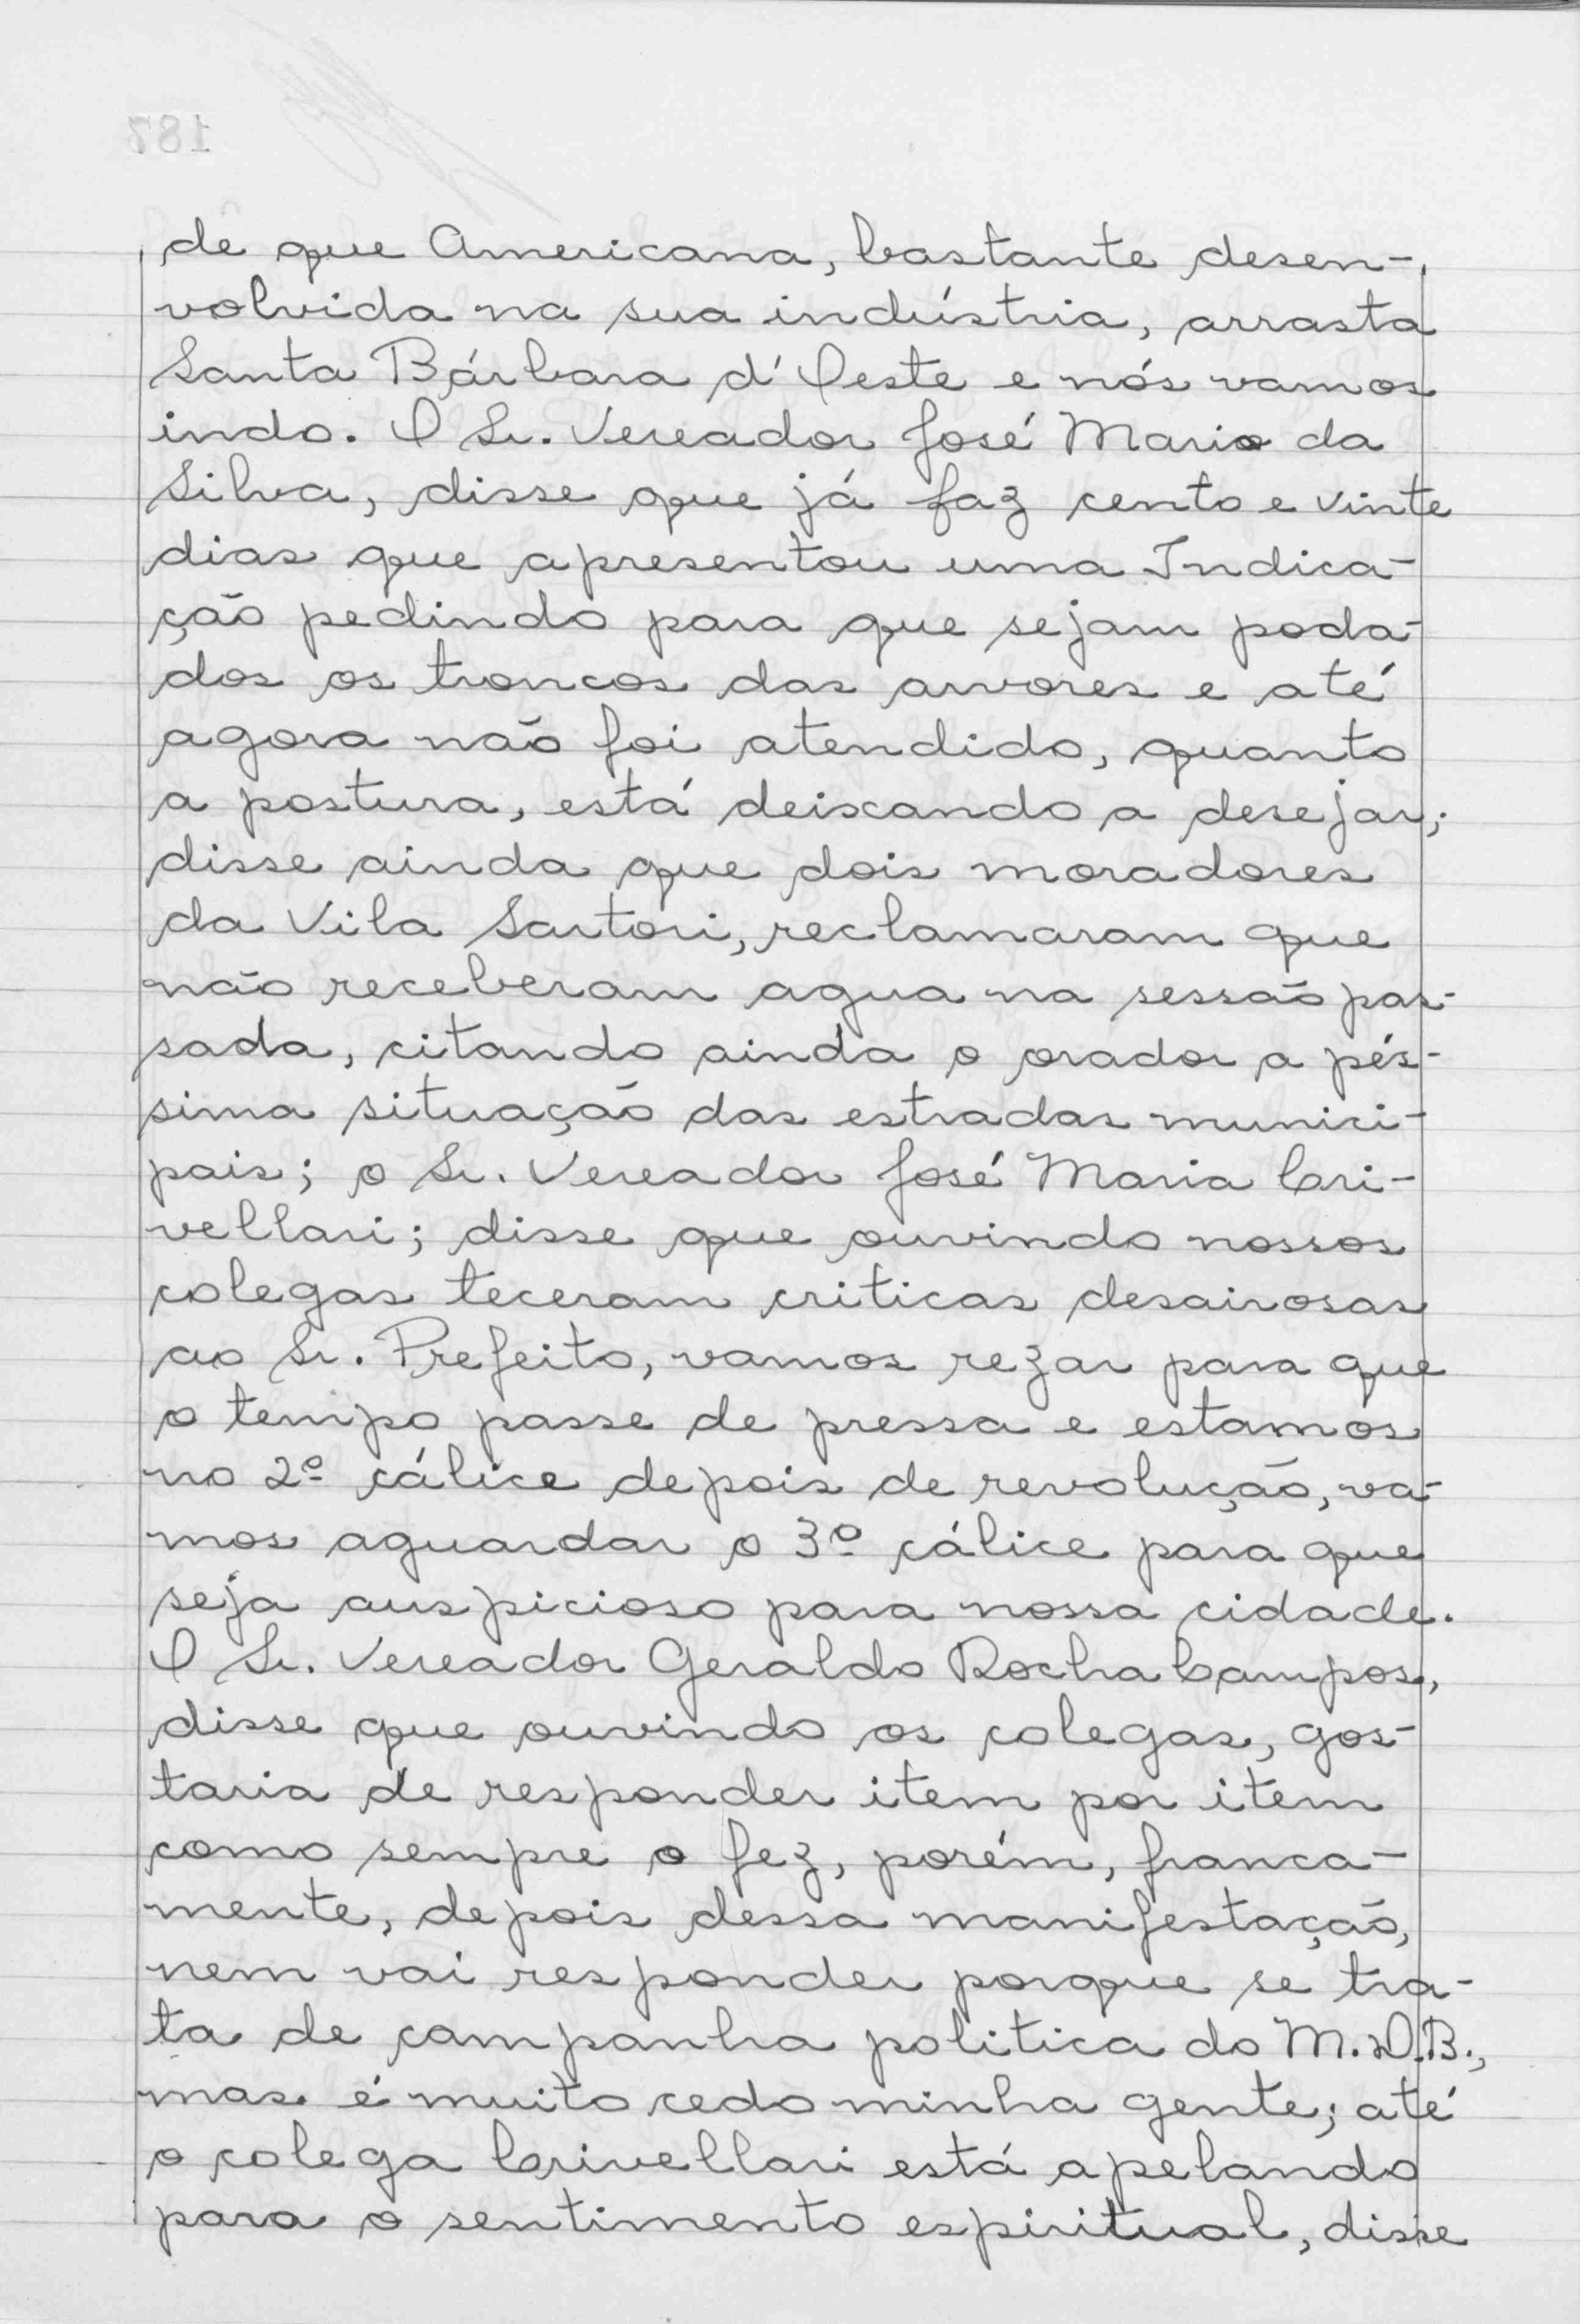 de que Americana, bastante desen-
volvida na sua indústria, arrasta
Santa Bárbara d'Oeste e nós vamos
indo. O Sr. Vereador José Maria da
Silva, disse que já faz cento e vinte
dias que apresentou uma Indica-
ção pedindo para que sejam poda-
dos os troncos das arvores e até
agora não foi atendido, quanto
a postura, está deixando a desejar;
disse ainda que dois moradores
da Vila Sartori, reclamaram que
não receberam agua na sessão pas-
sada, citando ainda o orador a pés-
sima situação das estradas munici-
pais; o Sr. Vereador José Maria Cri-
vellari; disse que ouvindo nossos
colegas teceram criticas desairosas
ao Sr. Prefeito, vamos rezar para que
o tempo passe de pressa e estamos
no 2º cálice depois de revolução, va-
mos aguardar o 3º cálice para que
seja auspicioso para nossa cidade.
O Sr. Vereador Geraldo Rocha Campos,
disse que ouvindo os colegas, gos-
taria de responder item por item
como sempre o fez, porém, franca-
mente, depois dessa manifestação,
nem vai responder porque se tra-
ta de campanha politica do M.D.B.,
mas é muito cedo minha gente; até
o colega Crivellari está apelando
para o sentimento espiritual, disse